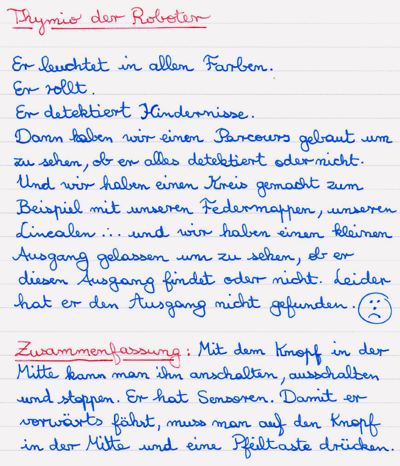 Thymio der Roboter
Er leuchtet in allen Farben.
Er rollt.
Er detektiert Hindernisse.
Dann haben wir einen Parcours gebaut um
zu sehen, ob er alles detektiert oder nicht.
Und wir haben einen Kreis gemacht zum
Beispiel mit unseren Federmappen, unseren
Linealen ... und wir haben einen kleinen
Ausgang gelassen um zu sehen, ob er
diesen Ausgang findet oder nicht. Leider
hat er den Ausgang nicht gefunden.
Zusammenfassung: Mit dem Knopf in der
Mitte kann man ihn anschalten, ausschalten
und stoppen. Er hat Sensoren. Damit er
vorwärts fährt, muss man auf den Knopf
in der Mitte und eine Pfeiltaste drücken.